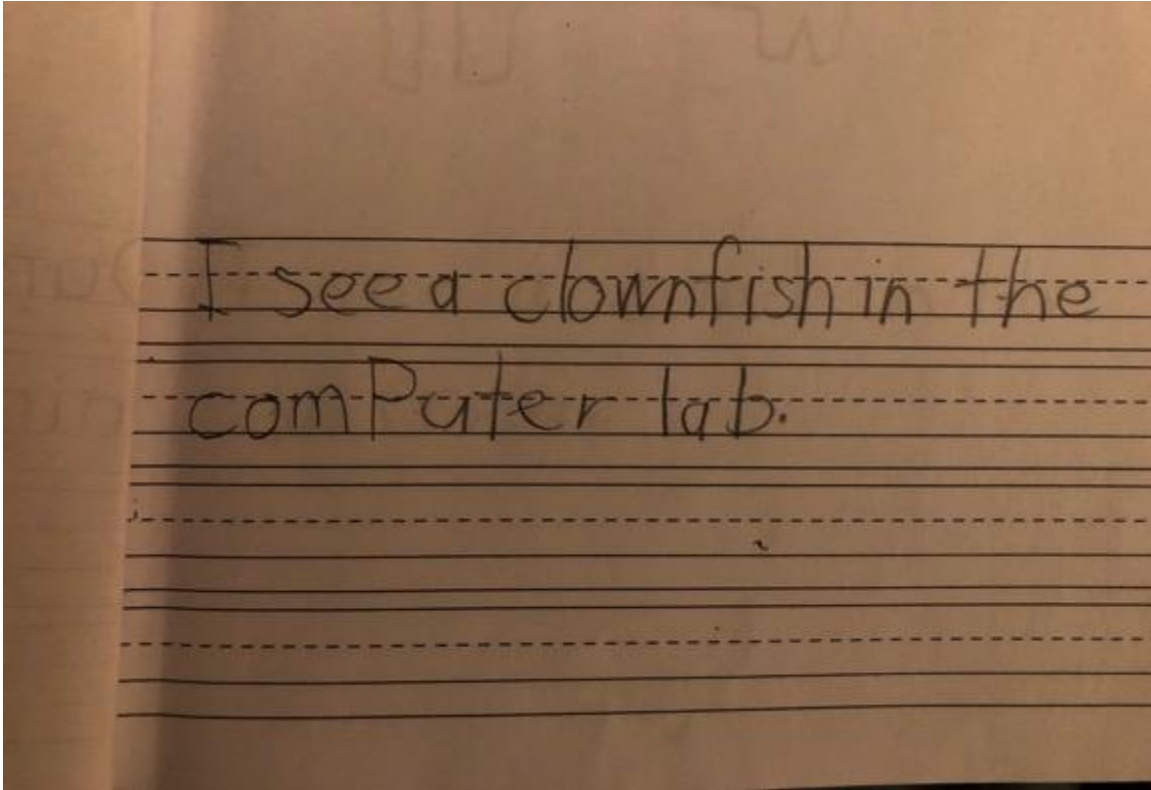 I see a clownfish in the
comPuter lab.